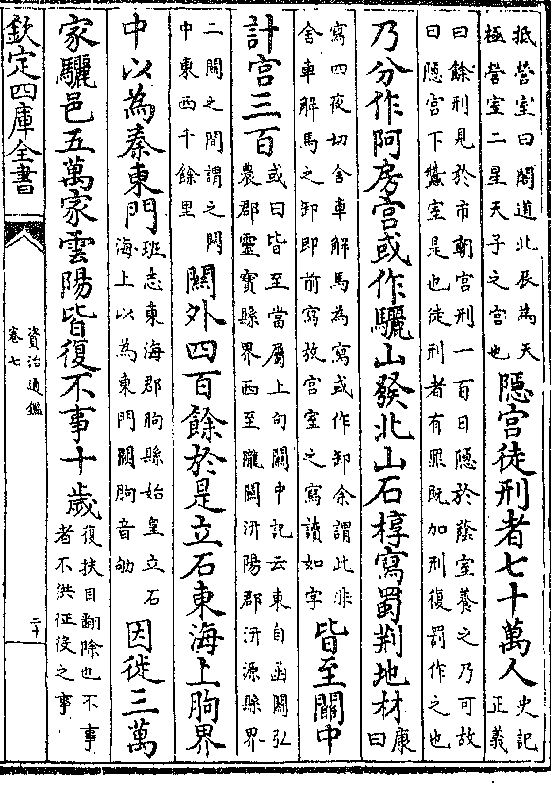 抵營室曰閣道北辰為天
極營室二星天子之宮也
隱宮徒刑者七十萬人
史記
正義
曰餘刑見於市朝宮刑一百日隱於蔭室養之乃可故
曰隱宮下蠶室是也徒刑者有罪既加刑復罰作之也
乃分作阿房宮或作驪山發北山石椁寫蜀荆地材
康
曰
寫四夜切舍車解馬為寫或作卸余謂此非
舍車解馬之卸即前寫放宮室之寫讀如字
皆至關中
計宮三百
或曰皆至當屬上句關中記云東自函關弘
農郡靈寶縣界西至隴關汧陽郡汧源縣界
二關之間謂之關
中東西千餘里
關外四百餘於是立石東海上朐界
中以為秦東門
班志東海郡朐縣始皇立石
海上以為東門闕朐音劬
因徙三萬
家驪邑五萬家雲陽皆復不事十歲
復扶目翻除也不事
者不供征役之事
欽定四庫全書
資治通鑑
卷七
二十